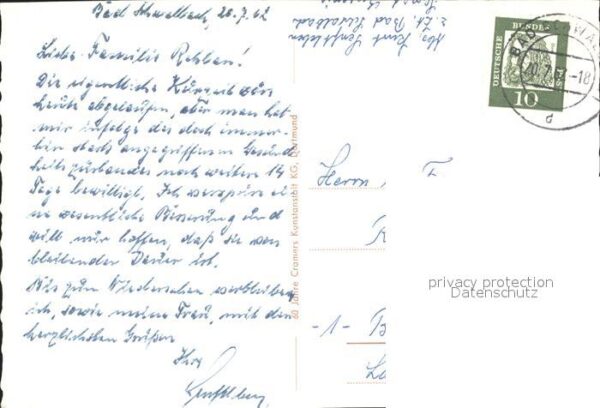 Bad Schwalbach, 20.7.62
Liebe Familie Rehban!
Die eigentliche Kurzeit wäre
heute abgelaufen, aber man hat
mir infolge des doch immer-
hin stark angegriffenen Gesund-
heitszustandes noch weitere 14
Tage bewilligt. Ich verspüre ei-
ne wesentliche Besserung und
will nur hoffen, daß sie von
bleibender Dauer ist.
Bis zum Wiedersehen verbleiben
ich, sowie meine Frau, mit den
herzlichsten Grüßen
Ihre
Abs. Kurt
z. Zt. Bad
60 Jahre Cramers Kunstanstalt KG, Dortmund
DEUTSCHE BUNDESPOST
10
-18
d
Herrn
F
-1- B
privacy protection
Datenschutz